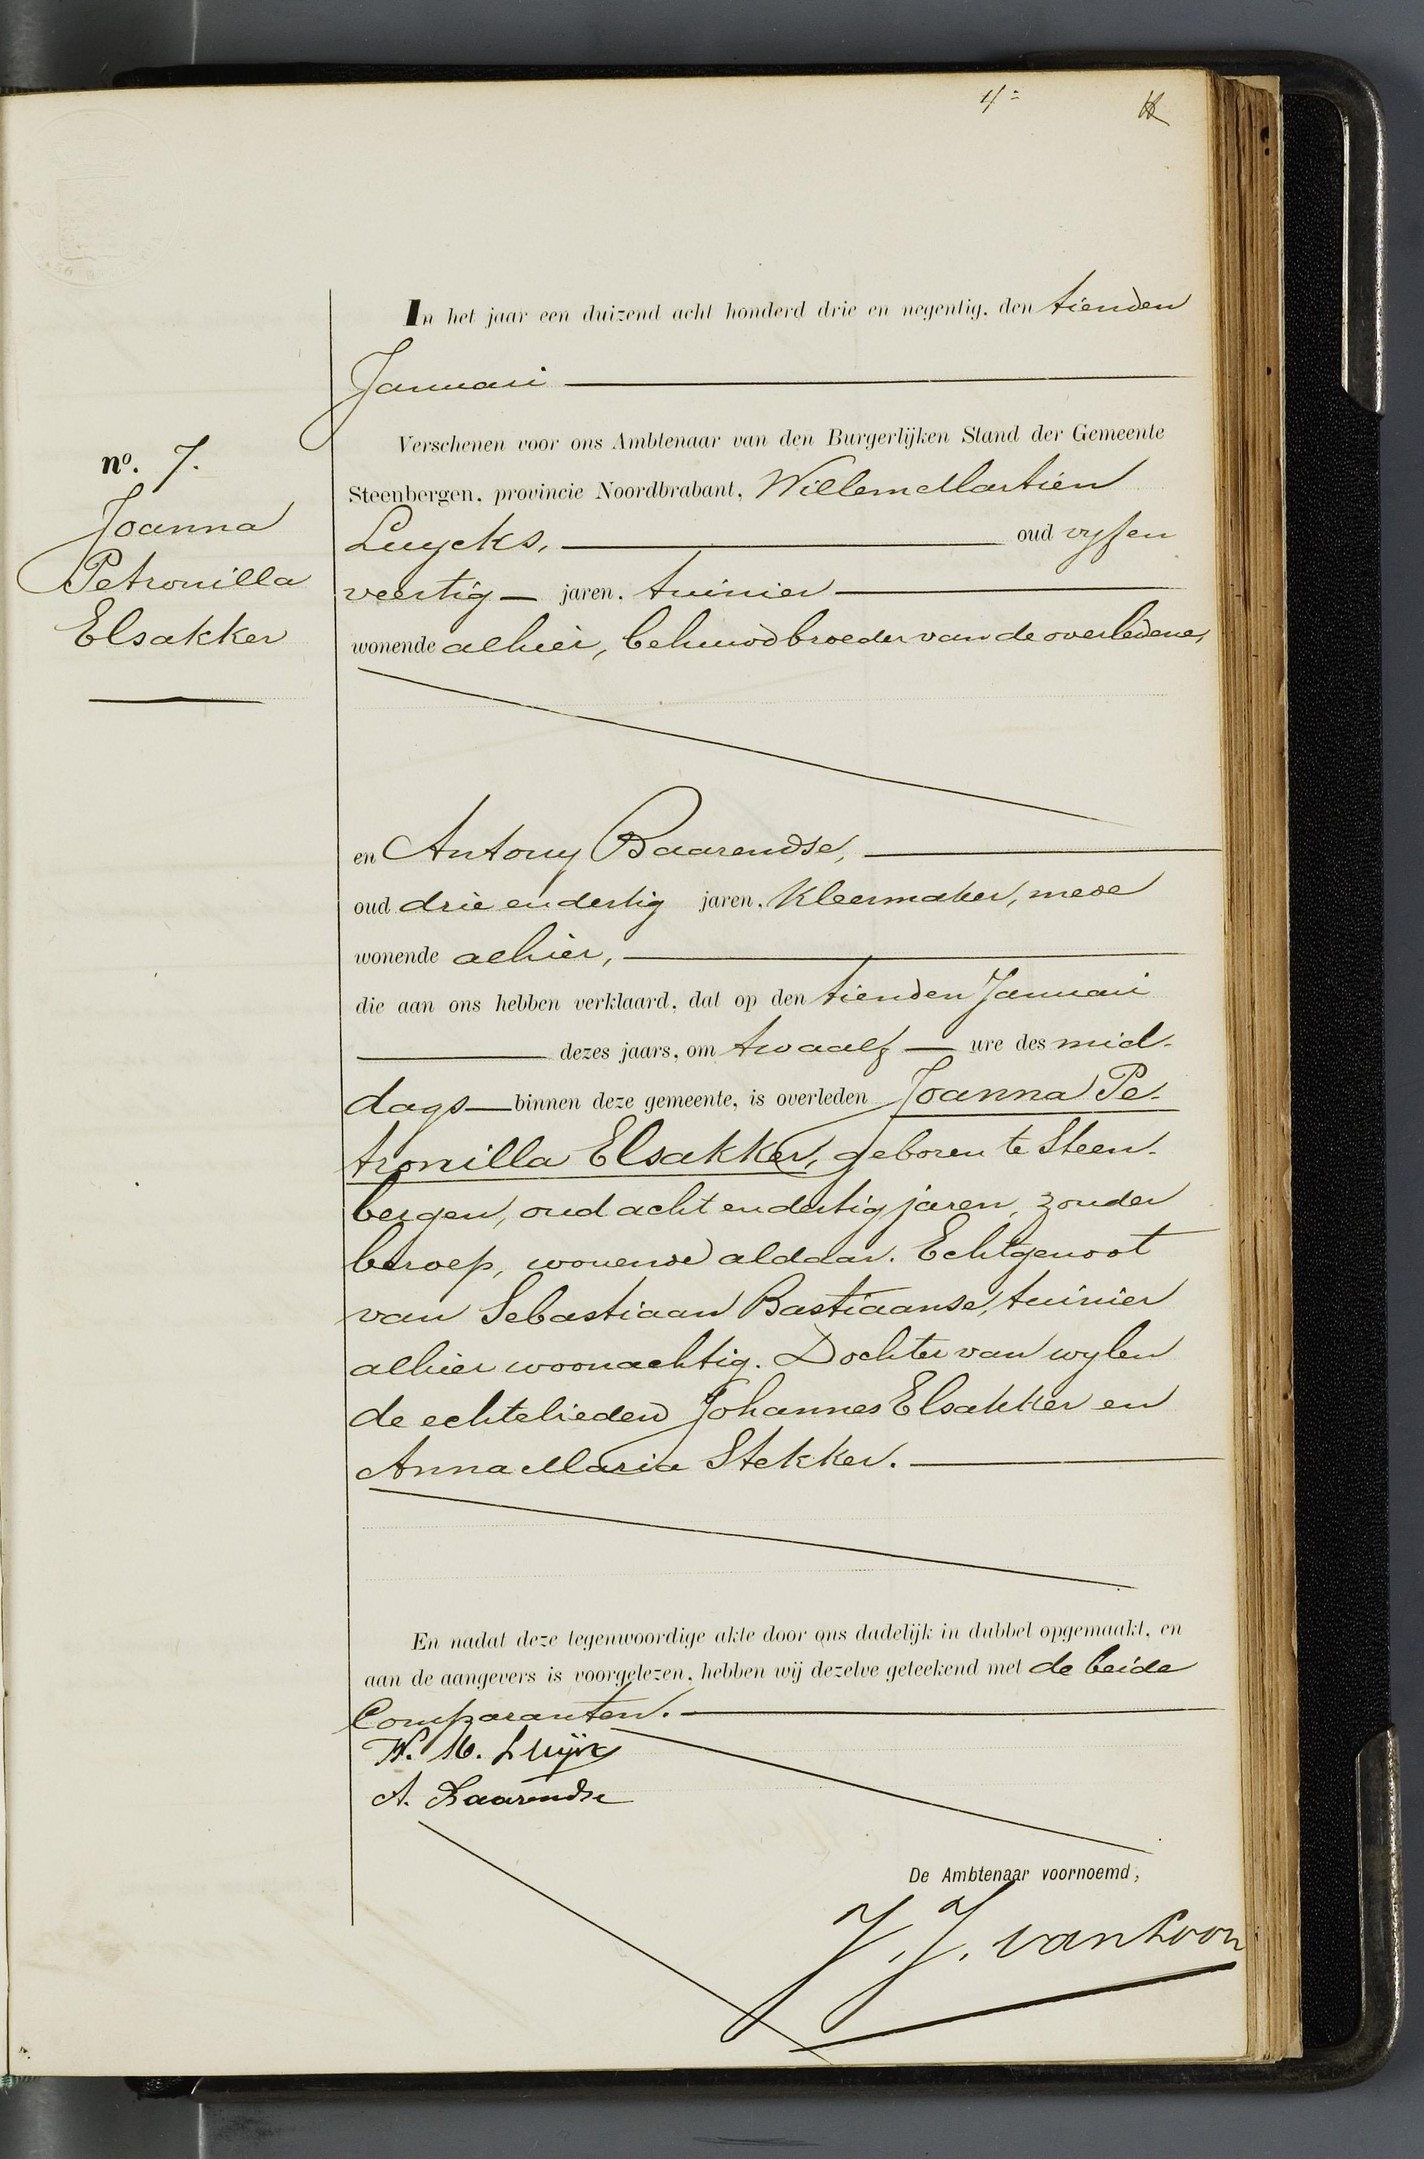 4=
In het jaar een duizend acht honderd drie en negentig, den tienden
Januari
no. 7.
Joanna
Petronilla
Elsakker
Verschenen voor ons Ambtenaar van den Burgerlijken Stand der Gemeente
Steenbergen, provincie Noordbrabant, Willem Martien
Luycks, oud vyf en
veertig jaren, tuinier
wonende alhier, behuwdbroeder van de overledene,
en Antony Baarendse,
oud drie en dertig jaren, kleermaker, mede
wonende alhier,
die aan ons hebben verklaard, dat op den tienden Januari
dezes jaars, om twaalf ure des mid-
dags binnen deze gemeente, is overleden Joanna Pe-
tronilla Elsakker, geboren te Steen-
bergen, oud acht en dertig jaren, zonder
beroep, wonende aldaar. Echtgenoot
van Sebastiaan Bastiaanse, tuinier
alhier woonachtig. Dochter van wylen
de echtelieden Johannes Elsakker en
Anna Maria Stekker.
En nadat deze tegenwoordige akte door ons dadelijk in dubbel opgemaakt, en
aan de aangevers is voorgelezen, hebben wij dezelve geteekend met de beide
Comparanten.
W. M. Luijcx
A. Baarendse
De Ambtenaar voornoemd,
J. J. van Loon